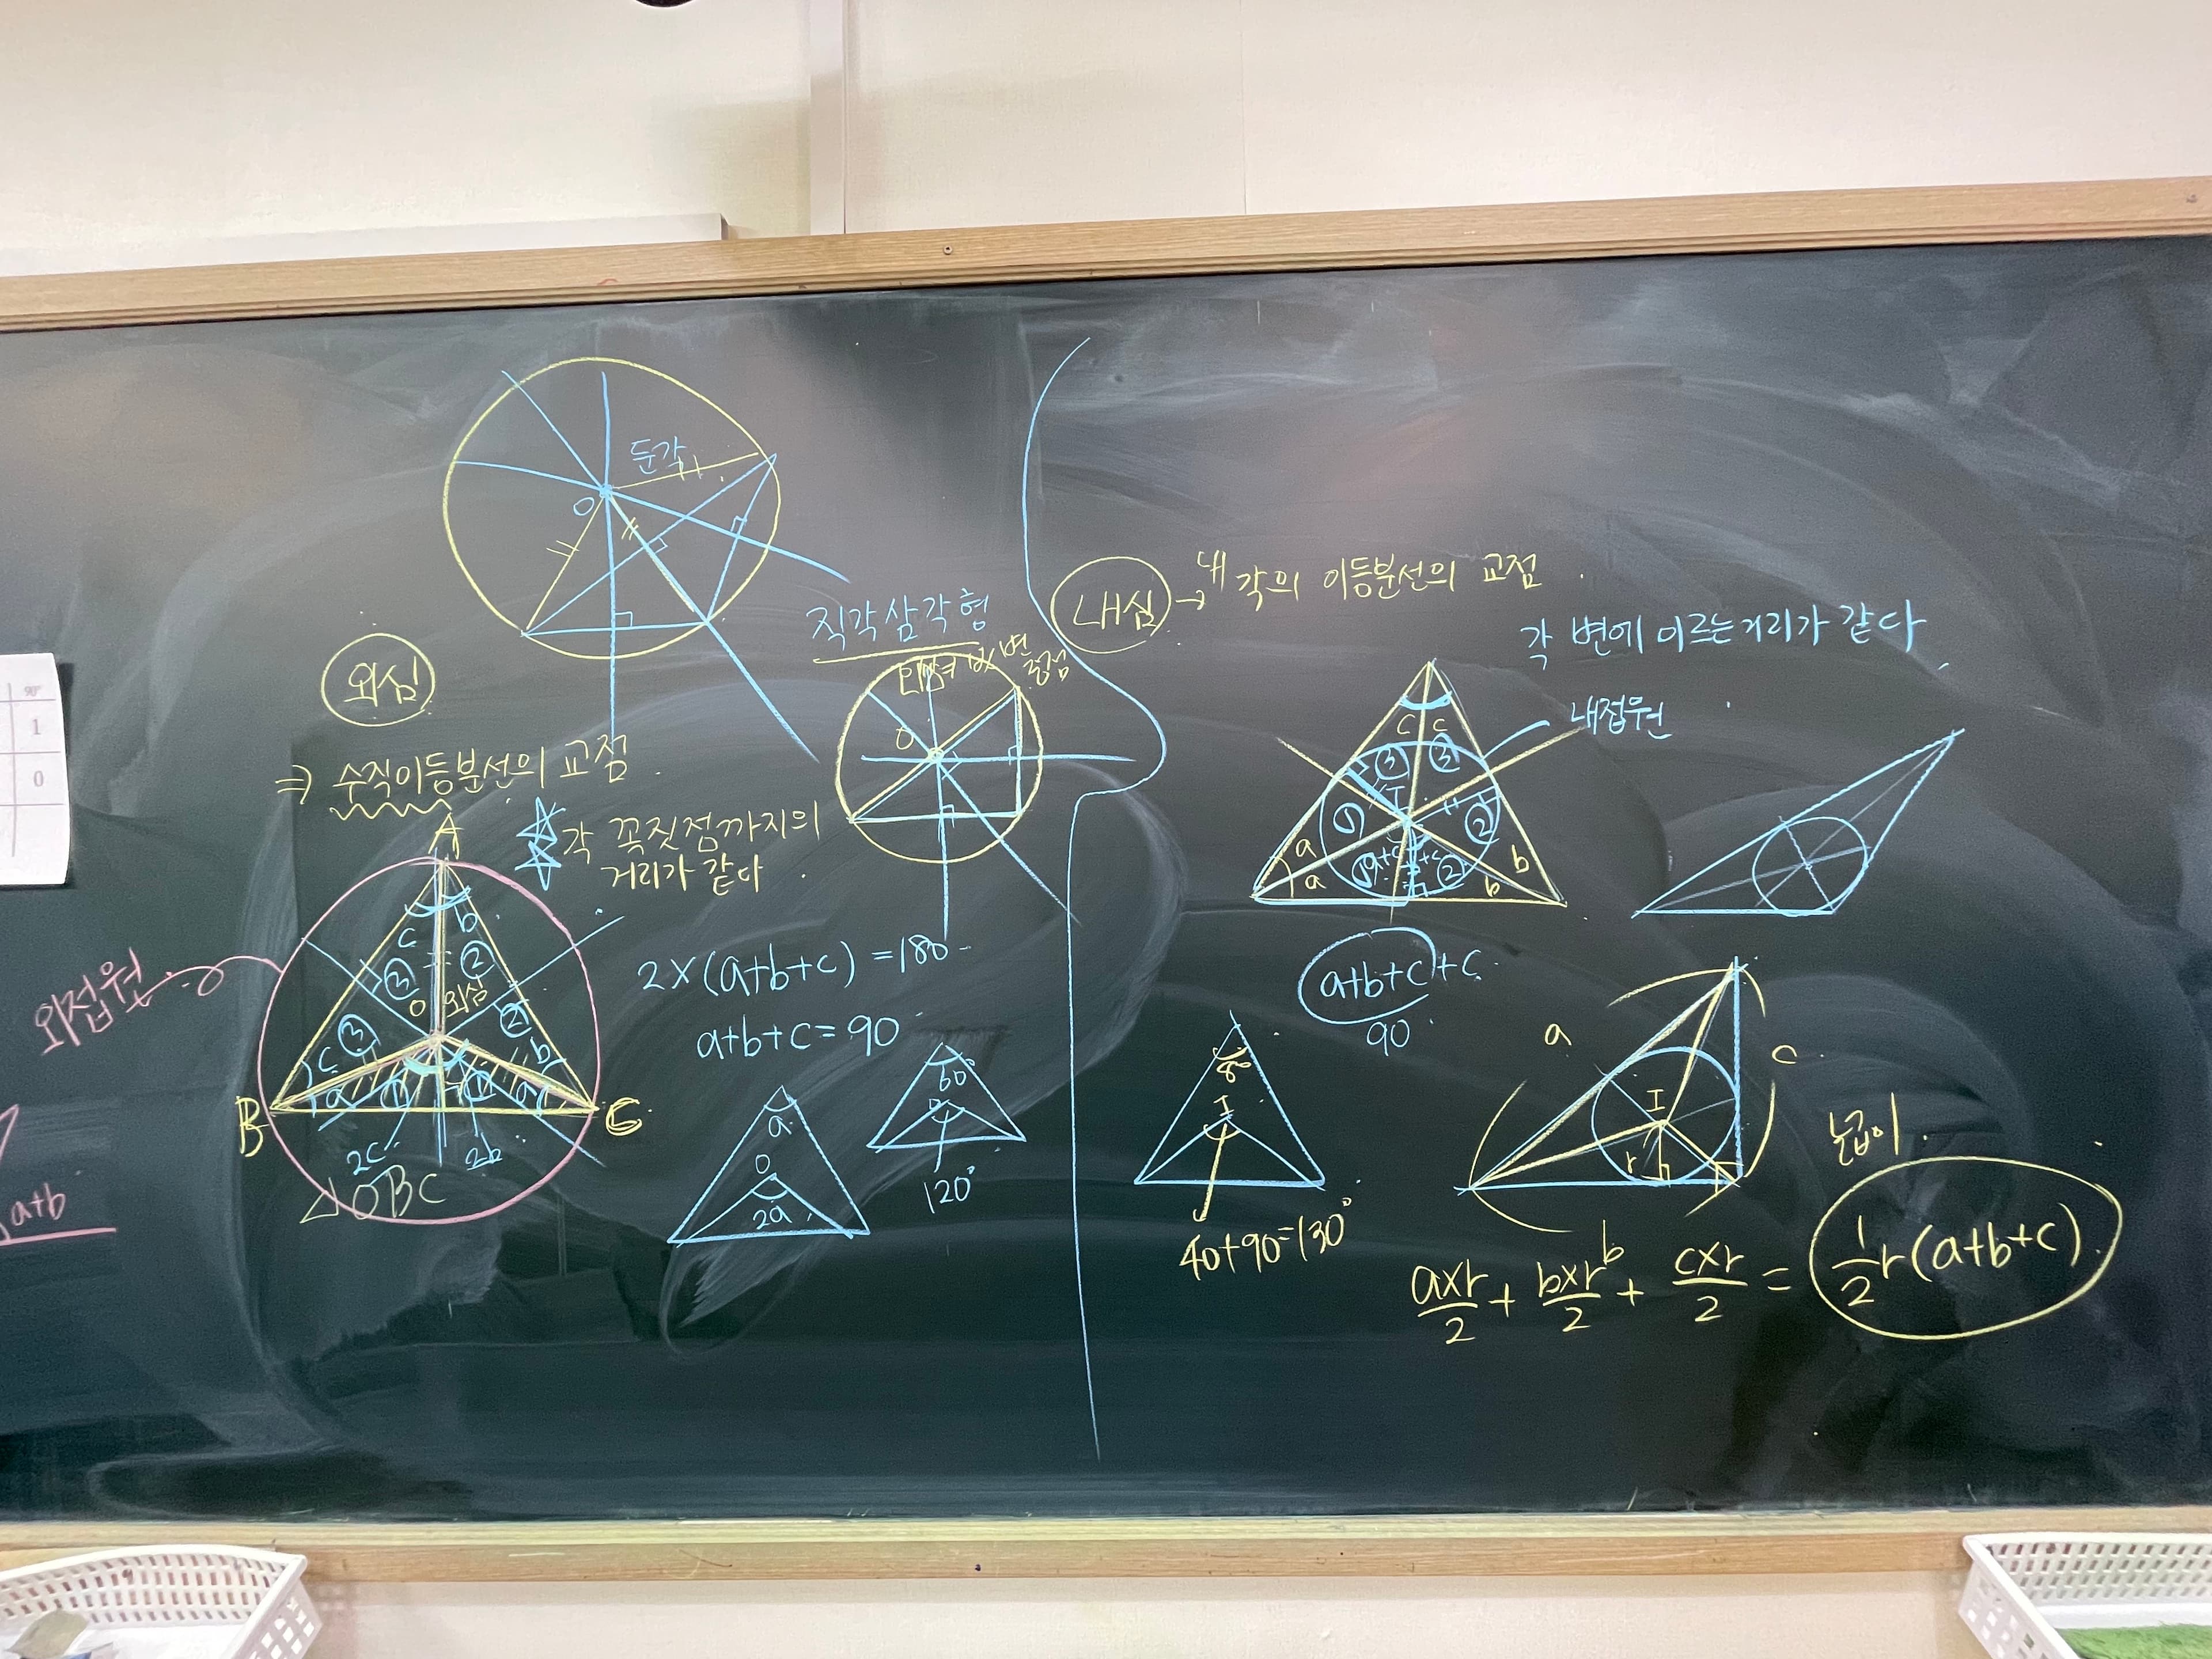 90°
1
0
a+b
둔각
O
외심
⇒ 수직이등분선의 교점
각 꼭짓점까지의
거리가 같다
외접원
A
c b
③ ②
O 외심
③ ②
c b
a ① ① a
B C
2c 2b
△OBC
직각삼각형
빗변
중점
O
2×(a+b+c)=180
a+b+c=90
a
O
2a
60°
O
120°
내심 → 내각의 이등분선의 교점
각 변에 이르는 거리가 같다
내접원
c c
③ ③
I
① ②
a b
a ① a+c b+c ② b
a+b+c+c
90
80
I
40+90=130°
a
c
I
r
b
눈곱이
axr/2 + bxr/2 + cxr/2 = 1/2 r(a+b+c)